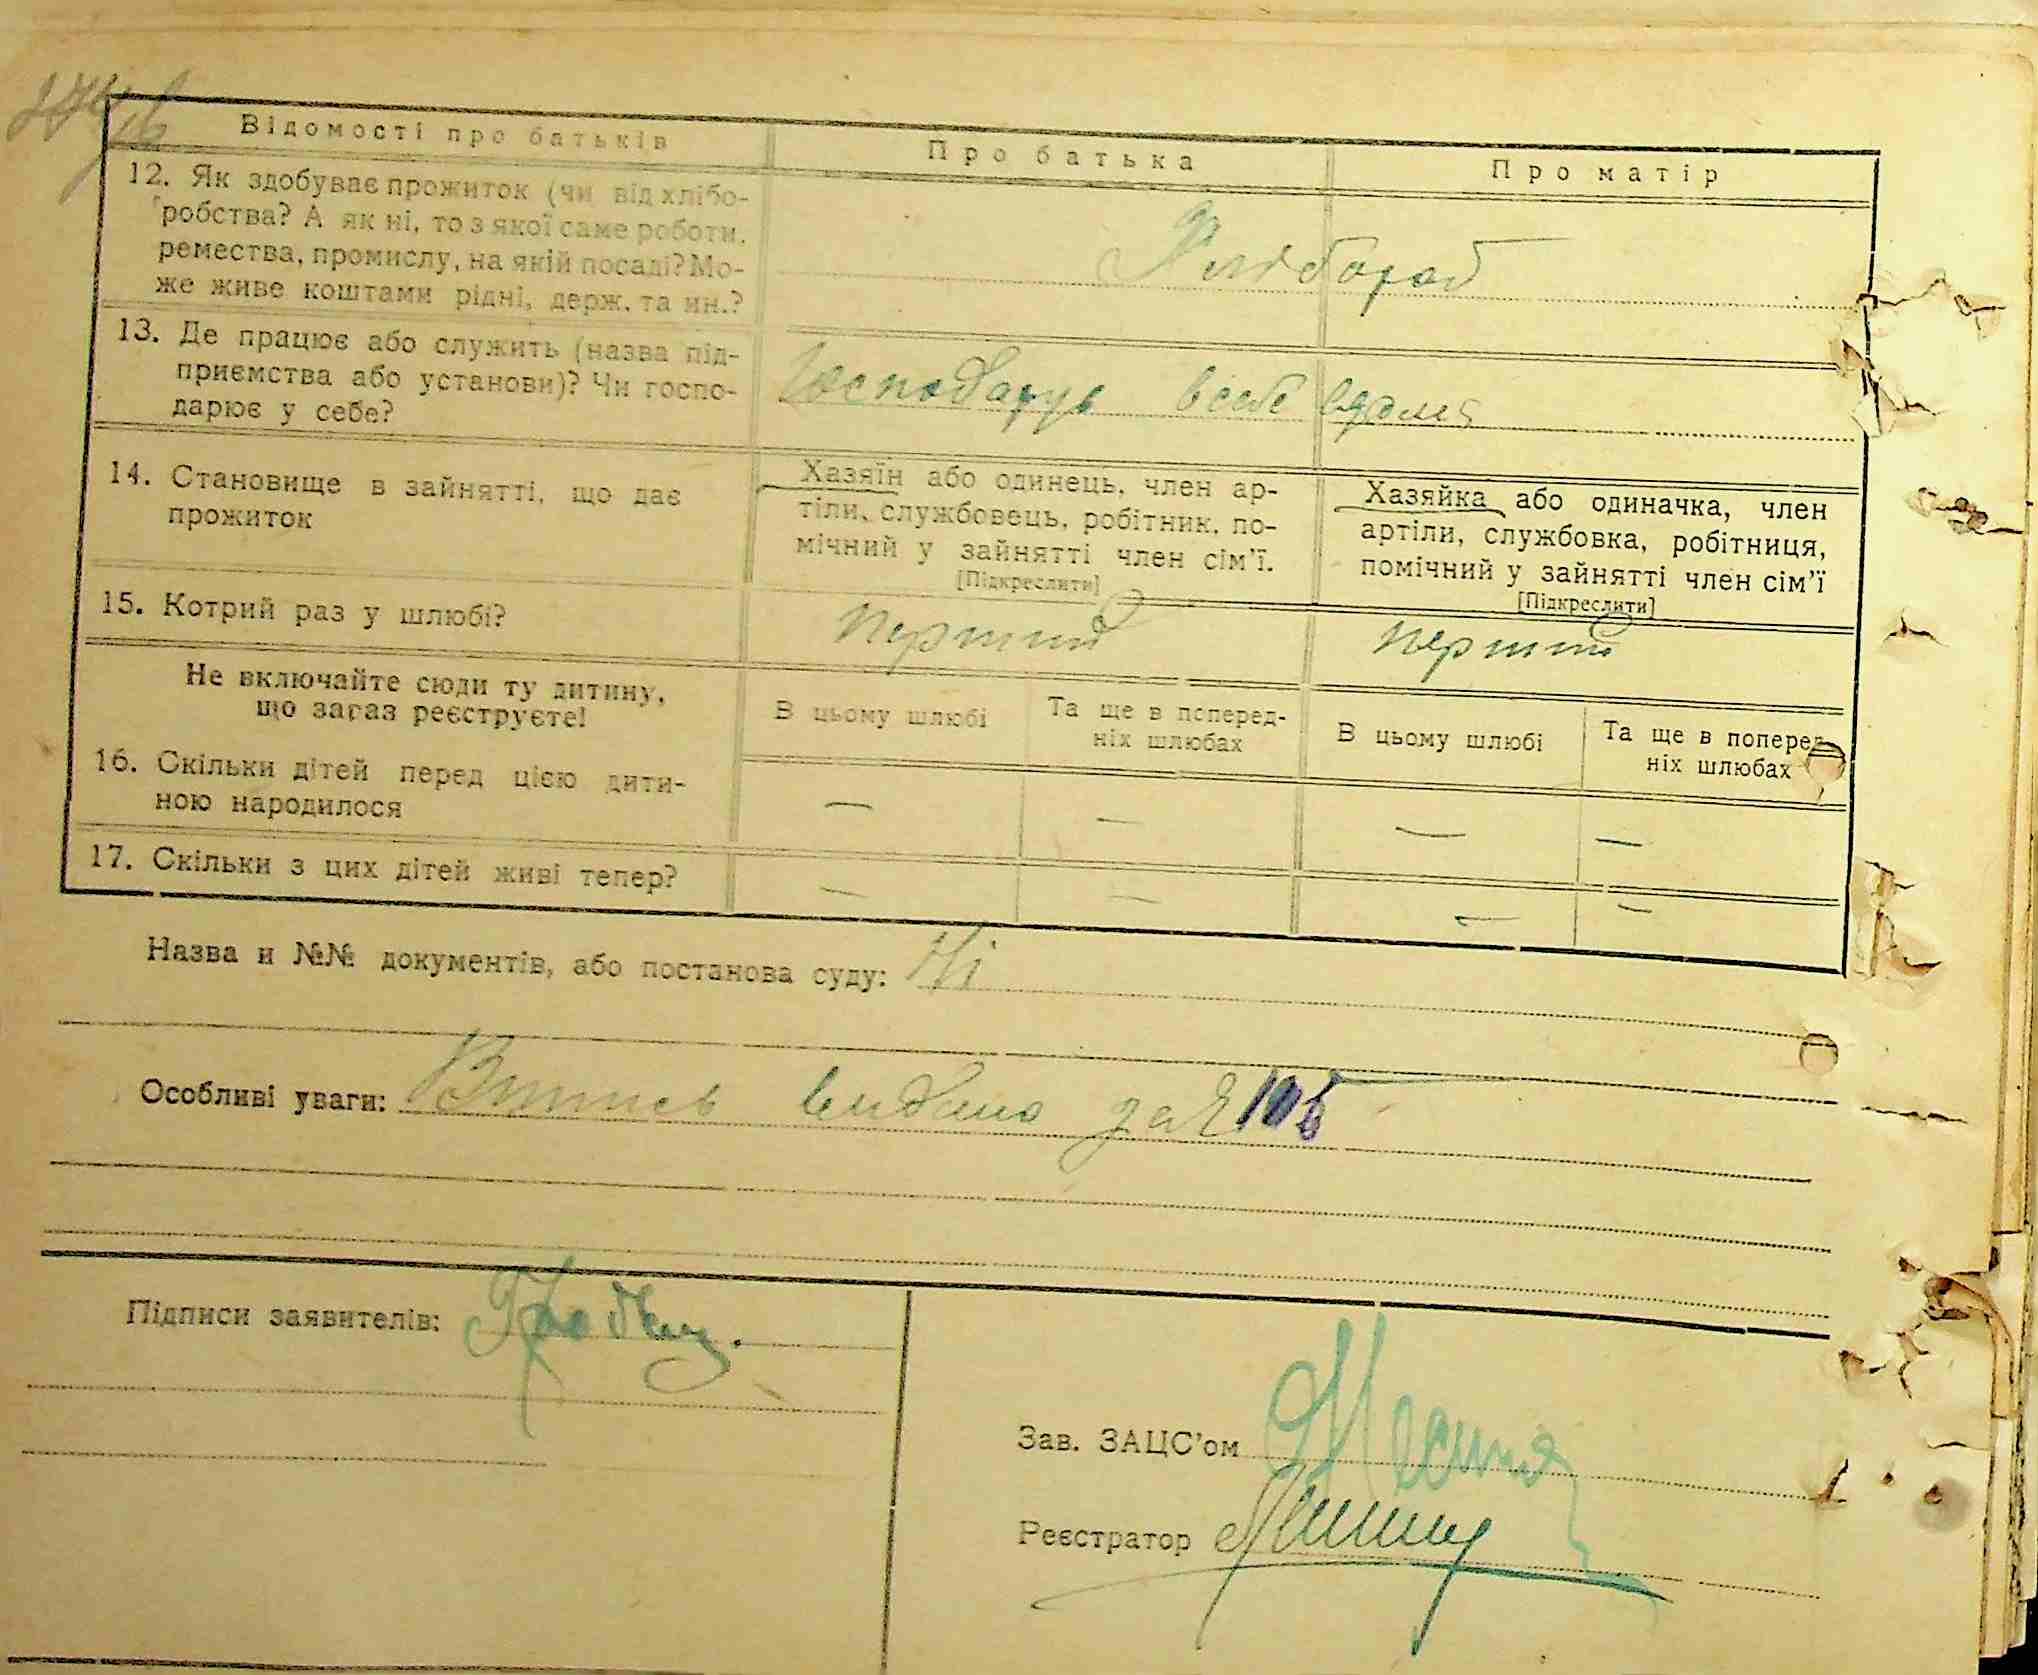 Відомості про батьків
Про батька
Про матір
12. Як здобуває прожиток (чи від хлібо-
робства? А як ні, то з якої саме роботи,
ремества, промислу, на якій посаді? Мо-
же живе коштами рідні, держ. та ин.?
Хлібороб
13. Де працює або служить (назва під-
приємства або установи)? Чи госпо-
дарює у себе?
Господарує в себе вдома
14. Становище в зайнятті, що дає
прожиток
Хазяїн або одинець, член ар-
тіли, службовець, робітник, по-
мічний у зайнятті член сім'ї.
[Підкреслити]
Хазяйка або одиначка, член
артіли, службовка, робітниця,
помічний у зайнятті член сім'ї
[Підкреслити]
15. Котрий раз у шлюбі?
перший
перший
Не включайте сюди ту дитину,
що зараз реєструєте!
В цьому шлюбі
Та ще в поперед-
ніх шлюбах
В цьому шлюбі
Та ще в поперед
ніх шлюбах
16. Скільки дітей перед цією дити-
ною народилося
— — — —
17. Скільки з цих дітей живі тепер?
— — — —
Назва и №№ документів, або постанова суду: Ні
Особливі уваги: Випись видано за №
Підписи заявителів:
Зав. ЗАЦС'ом
Реєстратор